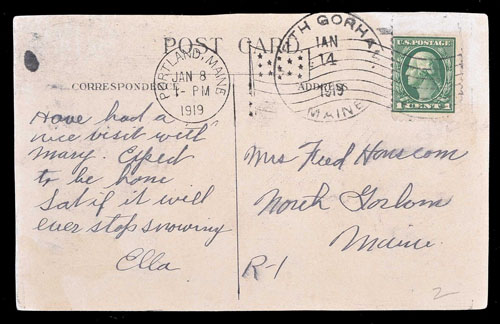 POST CARD
CORRESPONDENCE
ADDRESS
PORTLAND, MAINE
JAN 8
1-PM
1919
NORTH GORHAM
JAN
14
1919
MAINE
U.S. POSTAGE
1 CENT 1
Have had a
nice visit with
Mary. Expect
to be home
Sat if it will
ever stop snowing
Ella
Mrs Fred Hanscom
North Gorham
Maine.
R-1
2